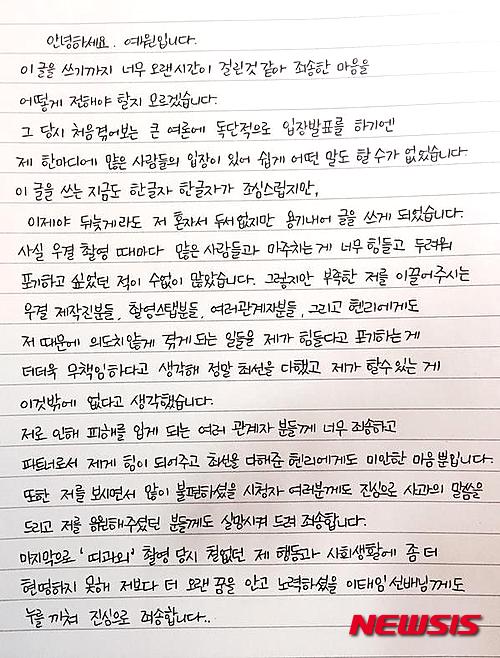 안녕하세요. 예원입니다.
이 글을 쓰기까지 너무 오랜시간이 걸린것 같아 죄송한 마음을
어떻게 전해야 할지 모르겠습니다.
그 당시 처음겪어보는 큰 여론에 독단적으로 입장발표를 하기엔
제 한마디에 많은 사람들의 입장이 있어 쉽게 어떤 말도 할 수가 없었습니다.
이 글을 쓰는 지금도 한글자 한글자가 조심스럽지만,
이제야 뒤늦게라도 저 혼자서 두서없지만 용기내어 글을 쓰게 되었습니다.
사실 우결 촬영 때마다 많은 사람들과 마주치는 게 너무 힘들고 두려워
포기하고 싶었던 적이 수없이 많았습니다. 그렇지만 부족한 저를 이끌어주시는
우결 제작진분들, 촬영스탭분들, 여러관계자분들, 그리고 헨리에게도
저 때문에 의도치않게 겪게 되는 일들을 제가 힘들다고 포기하는 게
더더욱 무책임하다고 생각해 정말 최선을 다했고 제가 할수있는 게
이것밖에 없다고 생각했습니다.
저로 인해 피해를 입게 되는 여러 관계자 분들께 너무 죄송하고
파트너로서 제게 힘이 되어주고 최선을 다해준 헨리에게도 미안한 마음뿐입니다.
또한 저를 보시면서 많이 불편하셨을 시청자 여러분께도 진심으로 사과의 말씀을
드리고 저를 응원해주셨던 분들께도 실망시켜 드려 죄송합니다.
마지막으로 '띠과외' 촬영 당시 철없던 제 행동과 사회생활에 좀 더
현명하지 못해 저보다 더 오랜 꿈을 안고 노력하셨을 이태임 선배님께도
누를 끼쳐 진심으로 죄송합니다..
NEWSIS